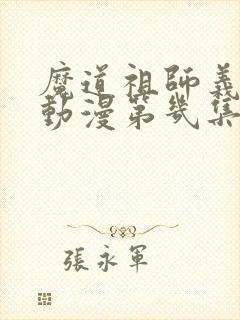 魔道祖師義
動漫第幾集
張永軍